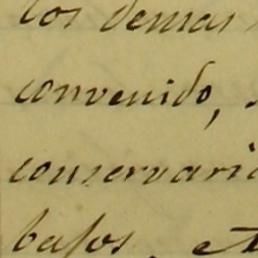 los demas
convenido,
conservari
basos, et